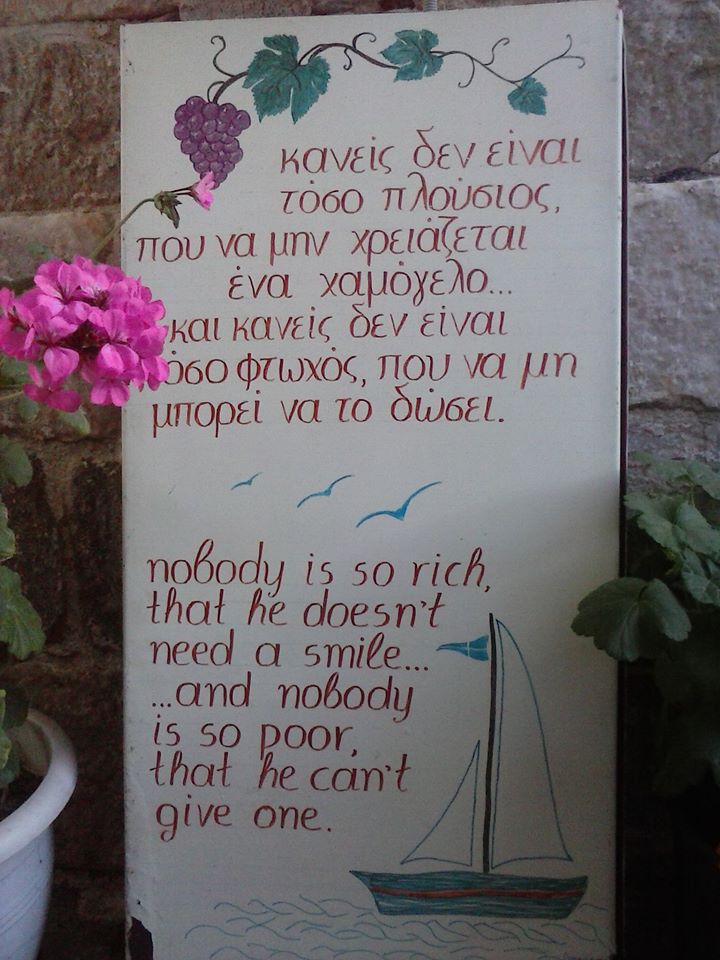 κανείς δεν είναι
τόσο πλούσιος,
που να μην χρειάζεται
ένα χαμόγελο...
και κανείς δεν είναι
όσο φτωχός, που να μη
μπορεί να το δώσει.
nobody is so rich,
that he doesn't
need a smile...
...and nobody
is so poor,
that he can't
give one.